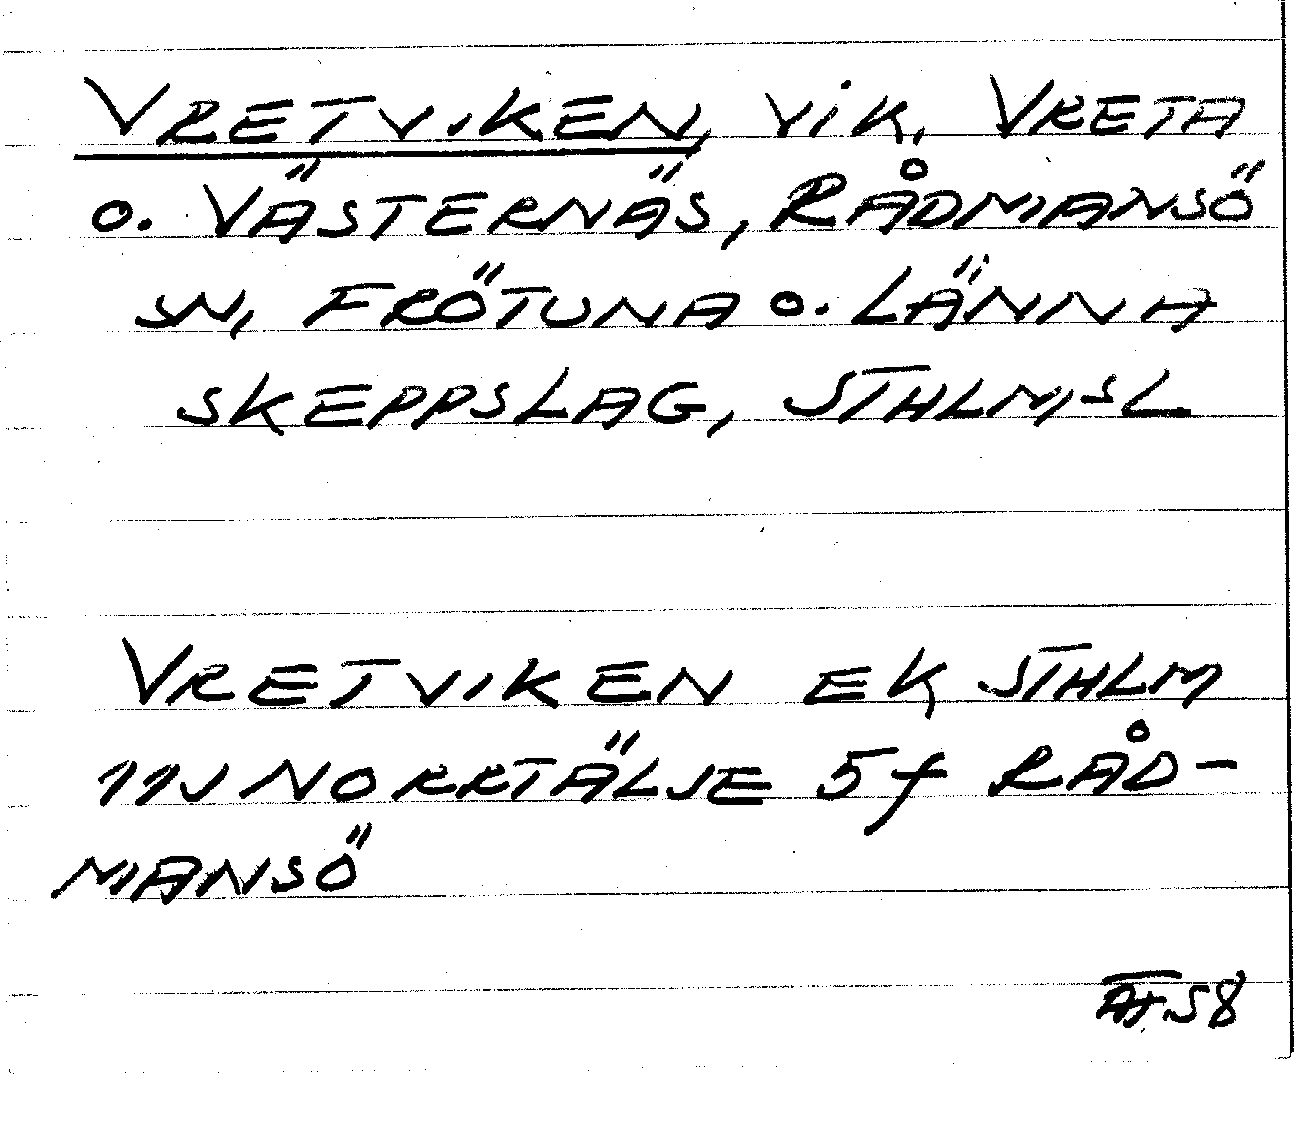 VRETVIKEN, VIK, VRETA
O. VÄSTERNÄS, RÅDMANSÖ
SN, FRÖTUNA O. LÄNNA
SKEPPSLAG, STHLMSL
VRETVIKEN EK STHLM
11J NORRTÄLJE 5f RÅD-
MANSÖ
58